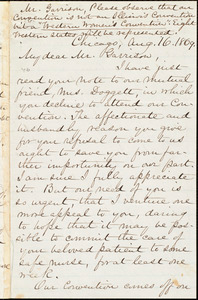 Mr. Garrison, Please observe that our
Convention is not an Illinois Convention
but a Western Woman's Convention. Eight
Western states will be represented.
Chicago, Aug. 16. 1869.
My dear Mr. Garrison.
I have just
read your note to our mutual
friend, Mrs. Doggett, in which
you decline to attend our Con-
vention. The affectionate and
husbandly reason you give
for your refusal to come to us
ought to save you any fur-
ther importunity, on our part.
I am sure I fully appreciate
it. But our need of you is
so urgent, that I venture one
more appeal to you, daring
to hope that it may be pos-
sible to commit the care of
your beloved patient to some
safe nurse, for at least one
week.
Our Convention comes off on